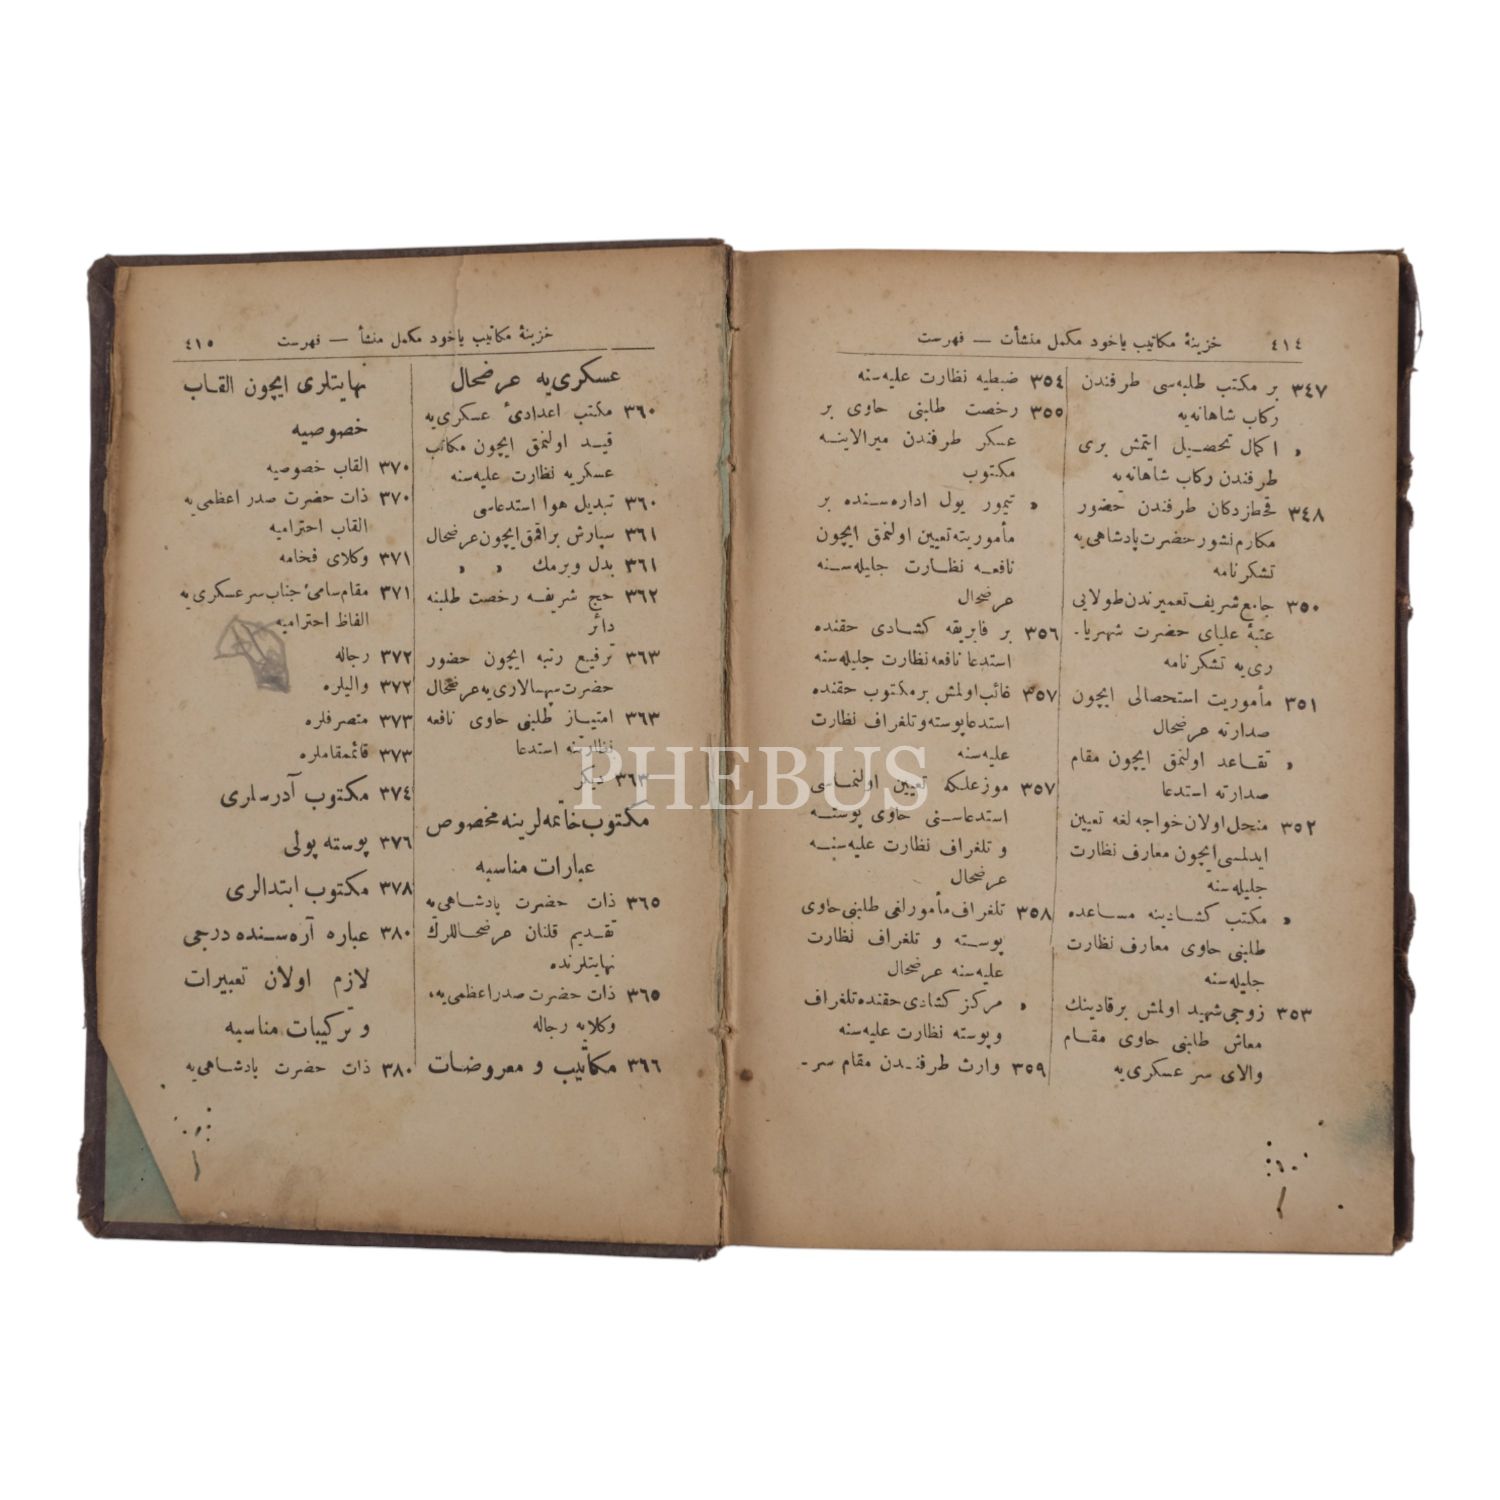 ٤١٤ خزینهٔ مکاتیب یاخود مکمل منشأت — فهرست
٣٤٧ بر مکتب طلبه‌سی طرفندن
رکاب شاهانه‌یه
« اکمال تحصیل ایتمش بری
طرفندن رکاب شاهانه‌یه
٣٤٨ قحطزدکان طرفندن حضور
مکارم‌نشور حضرت پادشاهی‌یه
تشکرنامه
٣٥٠ جامع شریف تعمیرندن طولایی
عتبهٔ علیای حضرت شهریا-
ری‌یه تشکرنامه
٣٥١ مأموریت استحصالی ایچون
صدارته عرضحال
« تقاعد اولنمق ایچون مقام
صدارته استدعا
٣٥٢ منحل اولان خواجه‌لغه تعیین
ایدلمسی ایچون معارف نظارت
جلیله‌سنه
« مکتب کشادینه مساعده
طلبنی حاوی معارف نظارت
جلیله‌سنه
٣٥٣ زوجی شهید اولمش بر قادینك
معاش طلبنی حاوی مقام
والای سر عسکری‌یه
٣٥٤ ضبطیه نظارت علیه‌سنه
٣٥٥ رخصت طلبنی حاوی بر
عسکر طرفندن میرالاینه
مکتوب
« تیمور یول اداره‌سنده بر
مأموریته تعیین اولنمق ایچون
نافعه نظارت جلیله‌سنه
عرضحال
٣٥٦ بر فابریقه کشادی حقنده
استدعا نافعه نظارت جلیله‌سنه
٣٥٧ غائب اولمش بر مکتوب حقنده
استدعا پوسته و تلغراف نظارت
علیه‌سنه
٣٥٧ موزعلکه تعیین اولنماسی
استدعاسنی حاوی پوسته
و تلغراف نظارت علیه‌سنه
عرضحال
٣٥٨ تلغراف مأمورلغی طلبنی حاوی
پوسته و تلغراف نظارت
علیه‌سنه عرضحال
« مرکز کشادی حقنده تلغراف
و پوسته نظارت علیه‌سنه
٣٥٩ وارث طرفندن مقام سر-
خزینهٔ مکاتیب یاخود مکمل منشأ — فهرست ٤١٥
عسکری‌یه عرضحال
٣٦٠ مکتب اعدادیٔ عسکری‌یه
قید اولنمق ایچون مکاتب
عسکریه نظارت علیه‌سنه
٣٦٠ تبدیل هوا استدعاسی
٣٦١ سپارش براقمق ایچون عرضحال
٣٦١ بدل ویرمك « «
٣٦٢ حج شریفه رخصت طلبنه
دائر
٣٦٣ ترفیع رتبه ایچون حضور
حضرت سپهسالاری‌یه عرضحال
٣٦٣ امتیاز طلبنی حاوی نافعه
نظارتنه استدعا
٣٦٣ دیکر
مکتوب خاتمه‌لرینه مخصوص
عبارات مناسبه
٣٦٥ ذات حضرت پادشاهی‌یه
تقدیم قلنان عرضحاللرك
نهایتلرنده
٣٦٥ ذات حضرت صدراعظمی‌یه،
وکلایه رجاله
٣٦٦ مکاتیب و معروضات
نهایتلری ایچون القاب
خصوصیه
٣٧٠ القاب خصوصیه
٣٧٠ ذات حضرت صدر اعظمی‌یه
القاب احترامیه
٣٧١ وکلای فخامه
٣٧١ مقام سامیٔ جناب سرعسکری‌یه
الفاظ احترامیه
٣٧٢ رجاله
٣٧٢ والیلره
٣٧٣ متصرفلره
٣٧٣ قائممقاملره
٣٧٤ مکتوب آدرسلری
٣٧٦ پوسته پولی
٣٧٨ مکتوب ابتدالری
٣٨٠ عباره آره‌سنده درجی
لازم اولان تعبیرات
و ترکیبات مناسبه
٣٨٠ ذات حضرت پادشاهی‌یه
PHEBUS